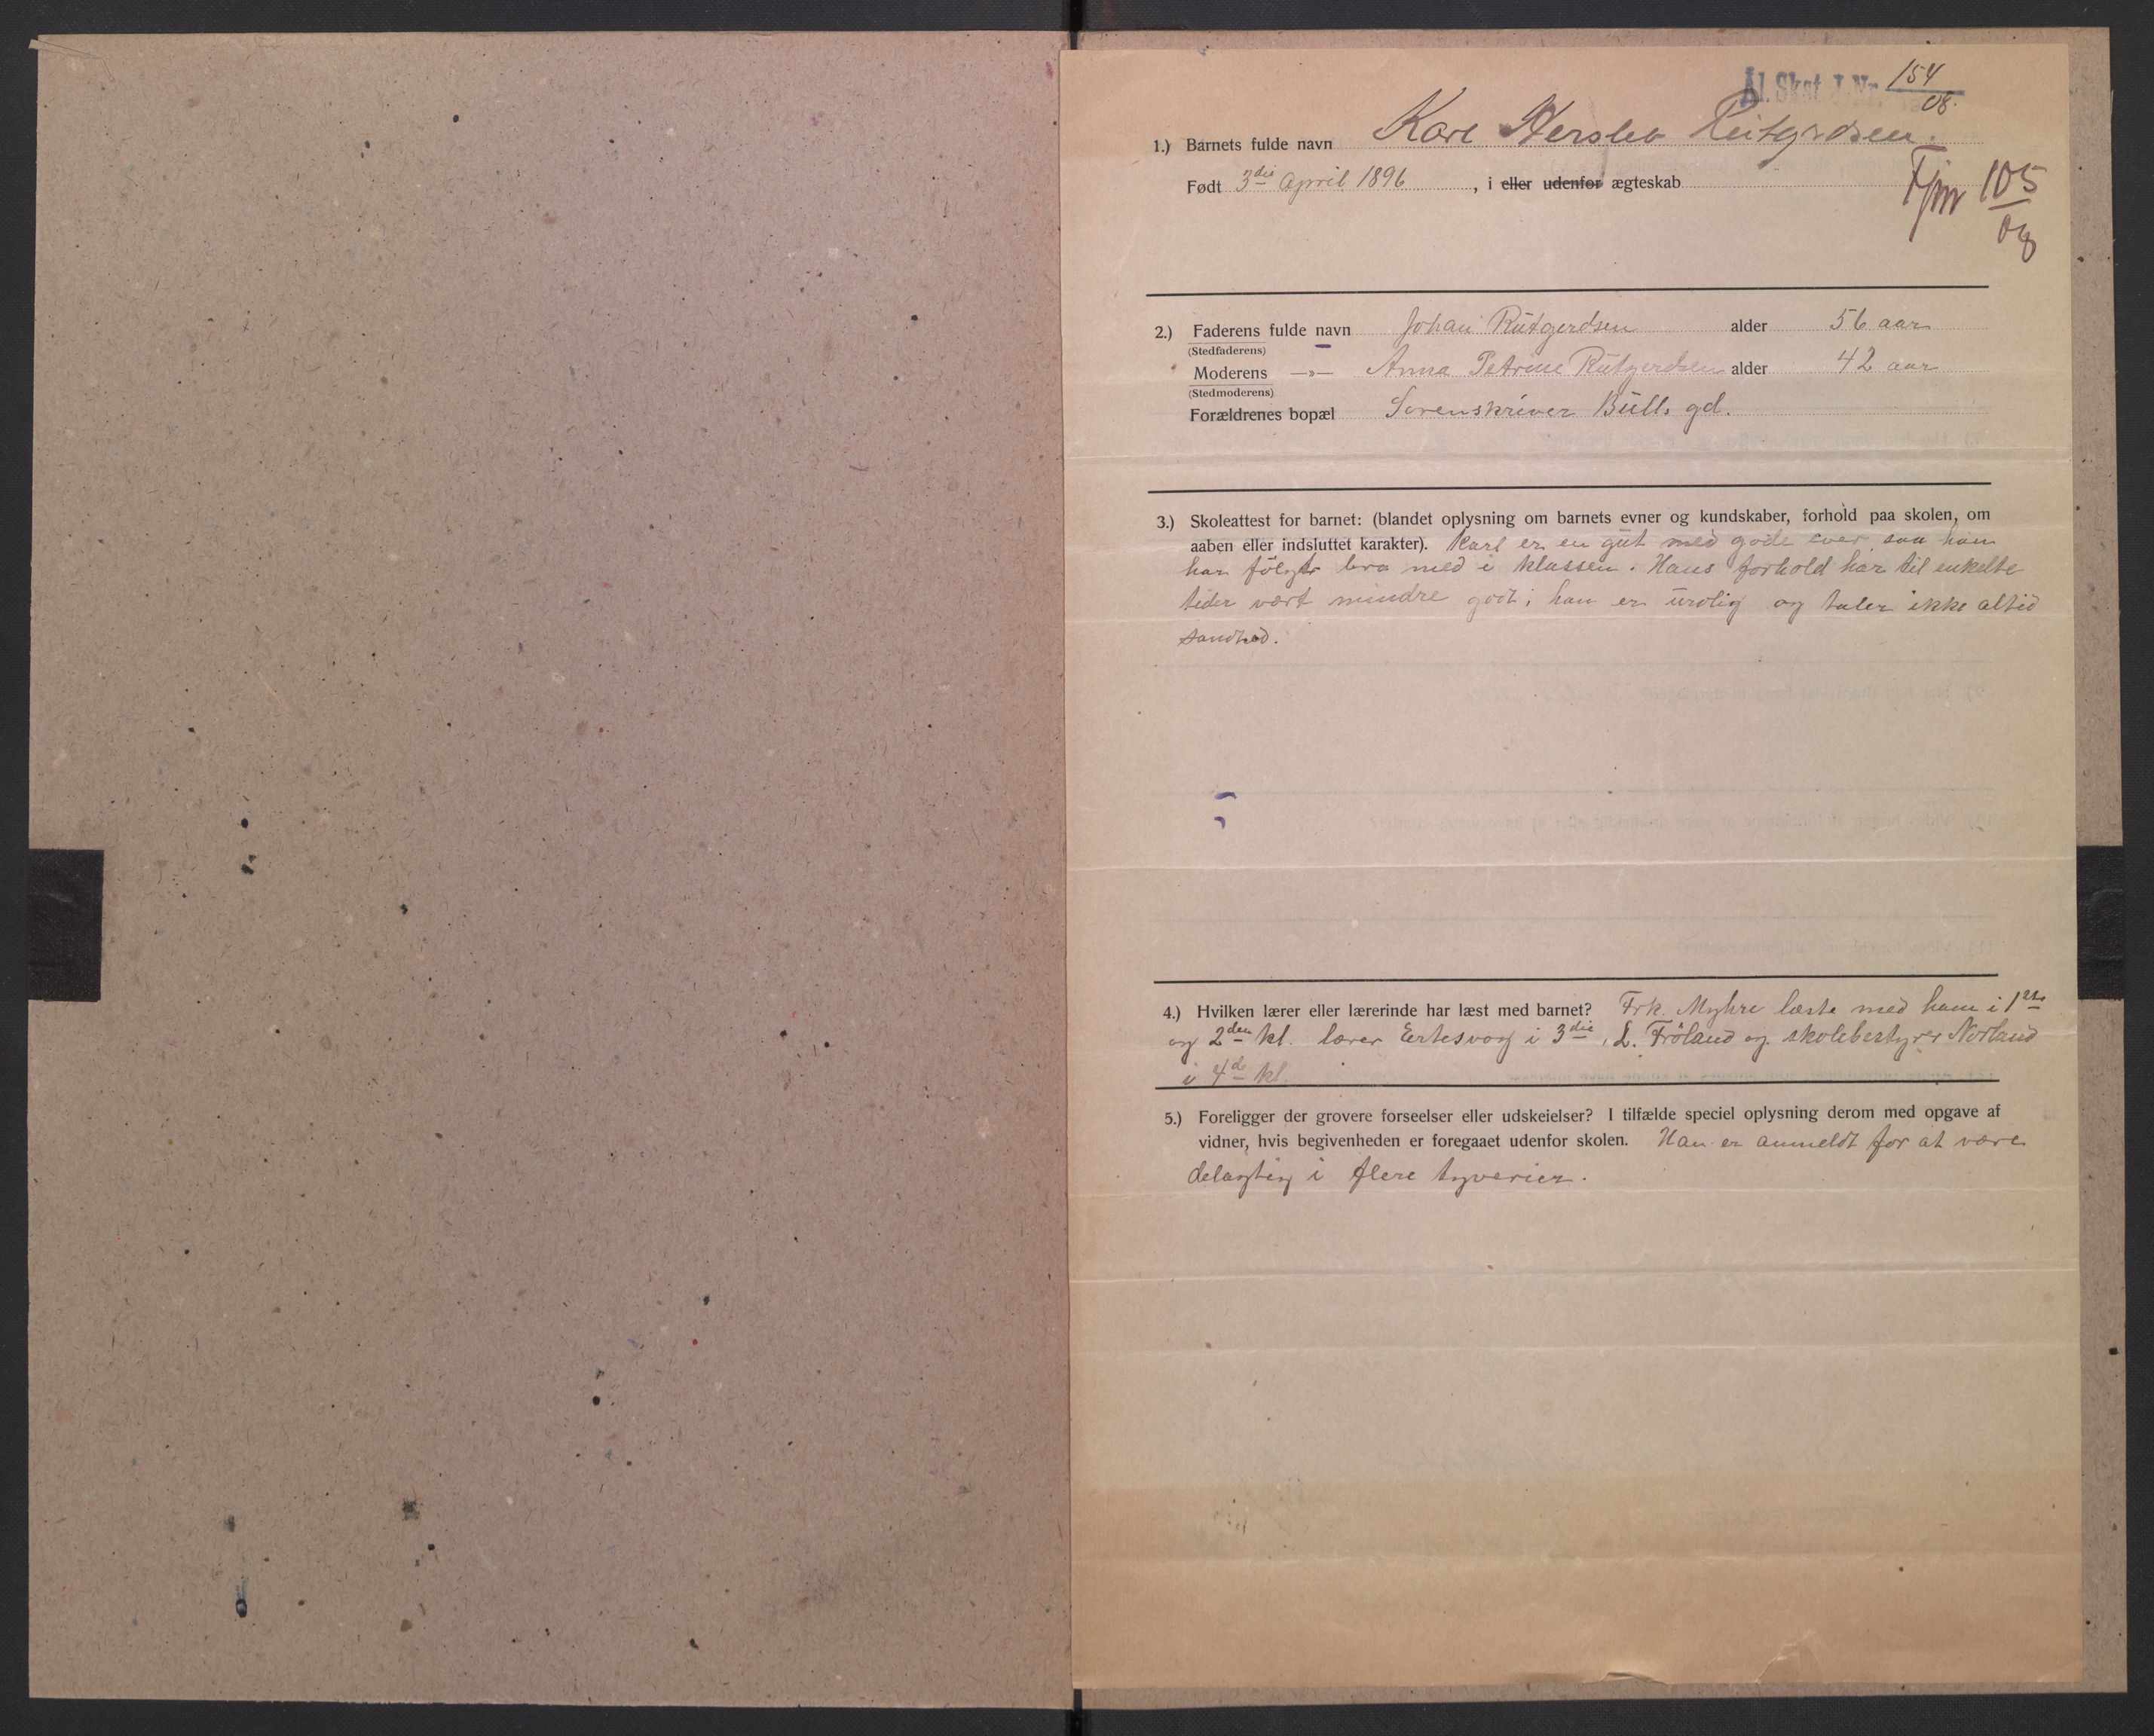 Ål. Skst. J.Nr. 154/08.
1.) Barnets fulde navn Karl Hersleb Rütgerdsen.
Født 3die April 1896, i eller udenfor ægteskab
Fjm 105/08
2.) Faderens fulde navn Johan Rütgerdsen alder 56 aar
(Stedfaderens)
Moderens —»— Anna Petrine Rütgerdsen alder 42 aar
(Stedmoderens)
Forældrenes bopæl Sorenskriver Bülls gd.
3.) Skoleattest for barnet: (blandet oplysning om barnets evner og kundskaber, forhold paa skolen, om
aaben eller indsluttet karakter). Karl er en gut med gode evner, saa han
har fölgt bra med i klassen. Hans forhold har til enkelte
tider vært mindre godt; han er urolig og taler ikke altid
sandhed.
4.) Hvilken lærer eller lærerinde har læst med barnet? Frk. Myhre læste med ham i 1ste
og 2den kl. lærer Eertesvaag i 3die, L. Fröland og skolebestyrer Norland
i 4de kl.
5.) Foreligger der grovere forseelser eller udskeielser? I tilfælde speciel oplysning derom med opgave af
vidner, hvis begivenheden er foregaaet udenfor skolen. Han er anmeldt for at være
delagtig i flere tyverier.